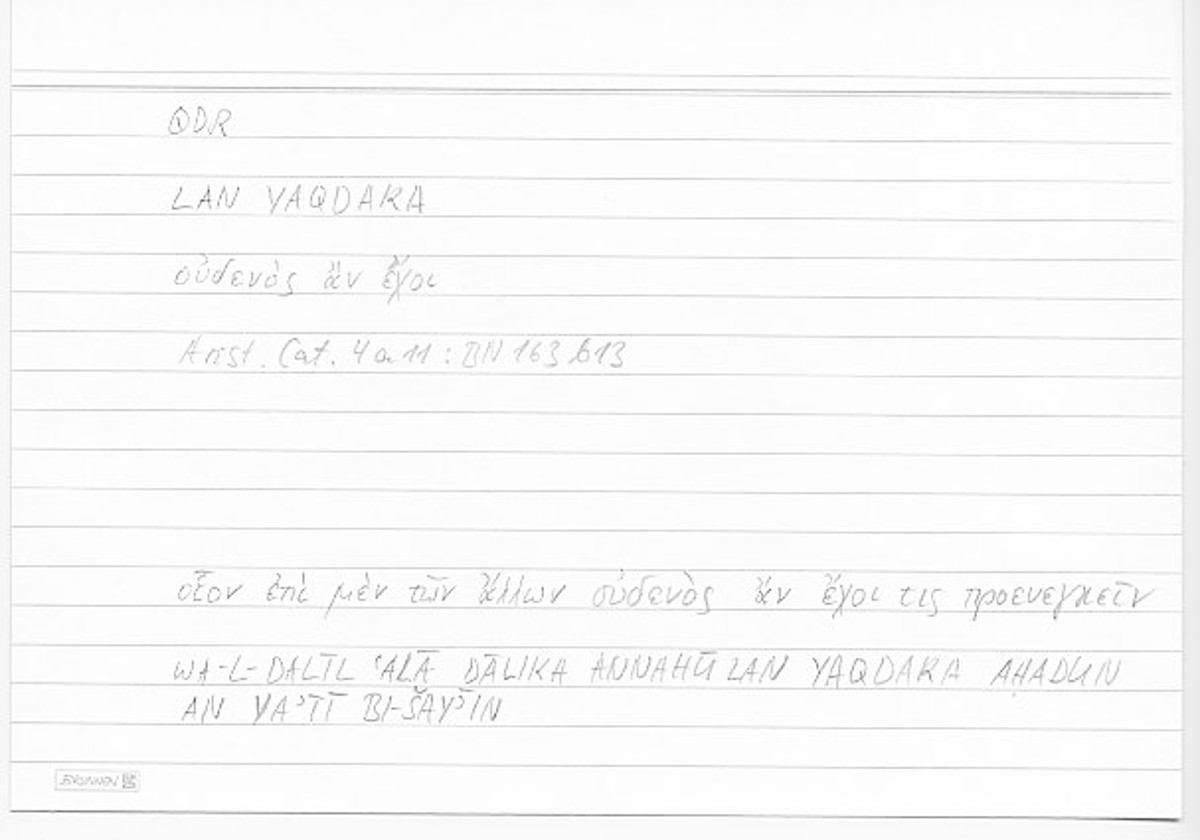 QDR
LAN YAQDARA
οὐδενὸς ἂν ἔχοι
Arist. Cat. 4a11 : BN 163b13
οἷον ἐπὶ μὲν τῶν ἄλλων οὐδενὸς ἂν ἔχοι τις προενεγκεῖν
WA-L-DALĪL ʿALĀ ḎĀLIKA ANNAHŪ LAN YAQDARA AḤADUN
AN YAʾTĪ BI-ŠAYʾIN
BRUNNEN